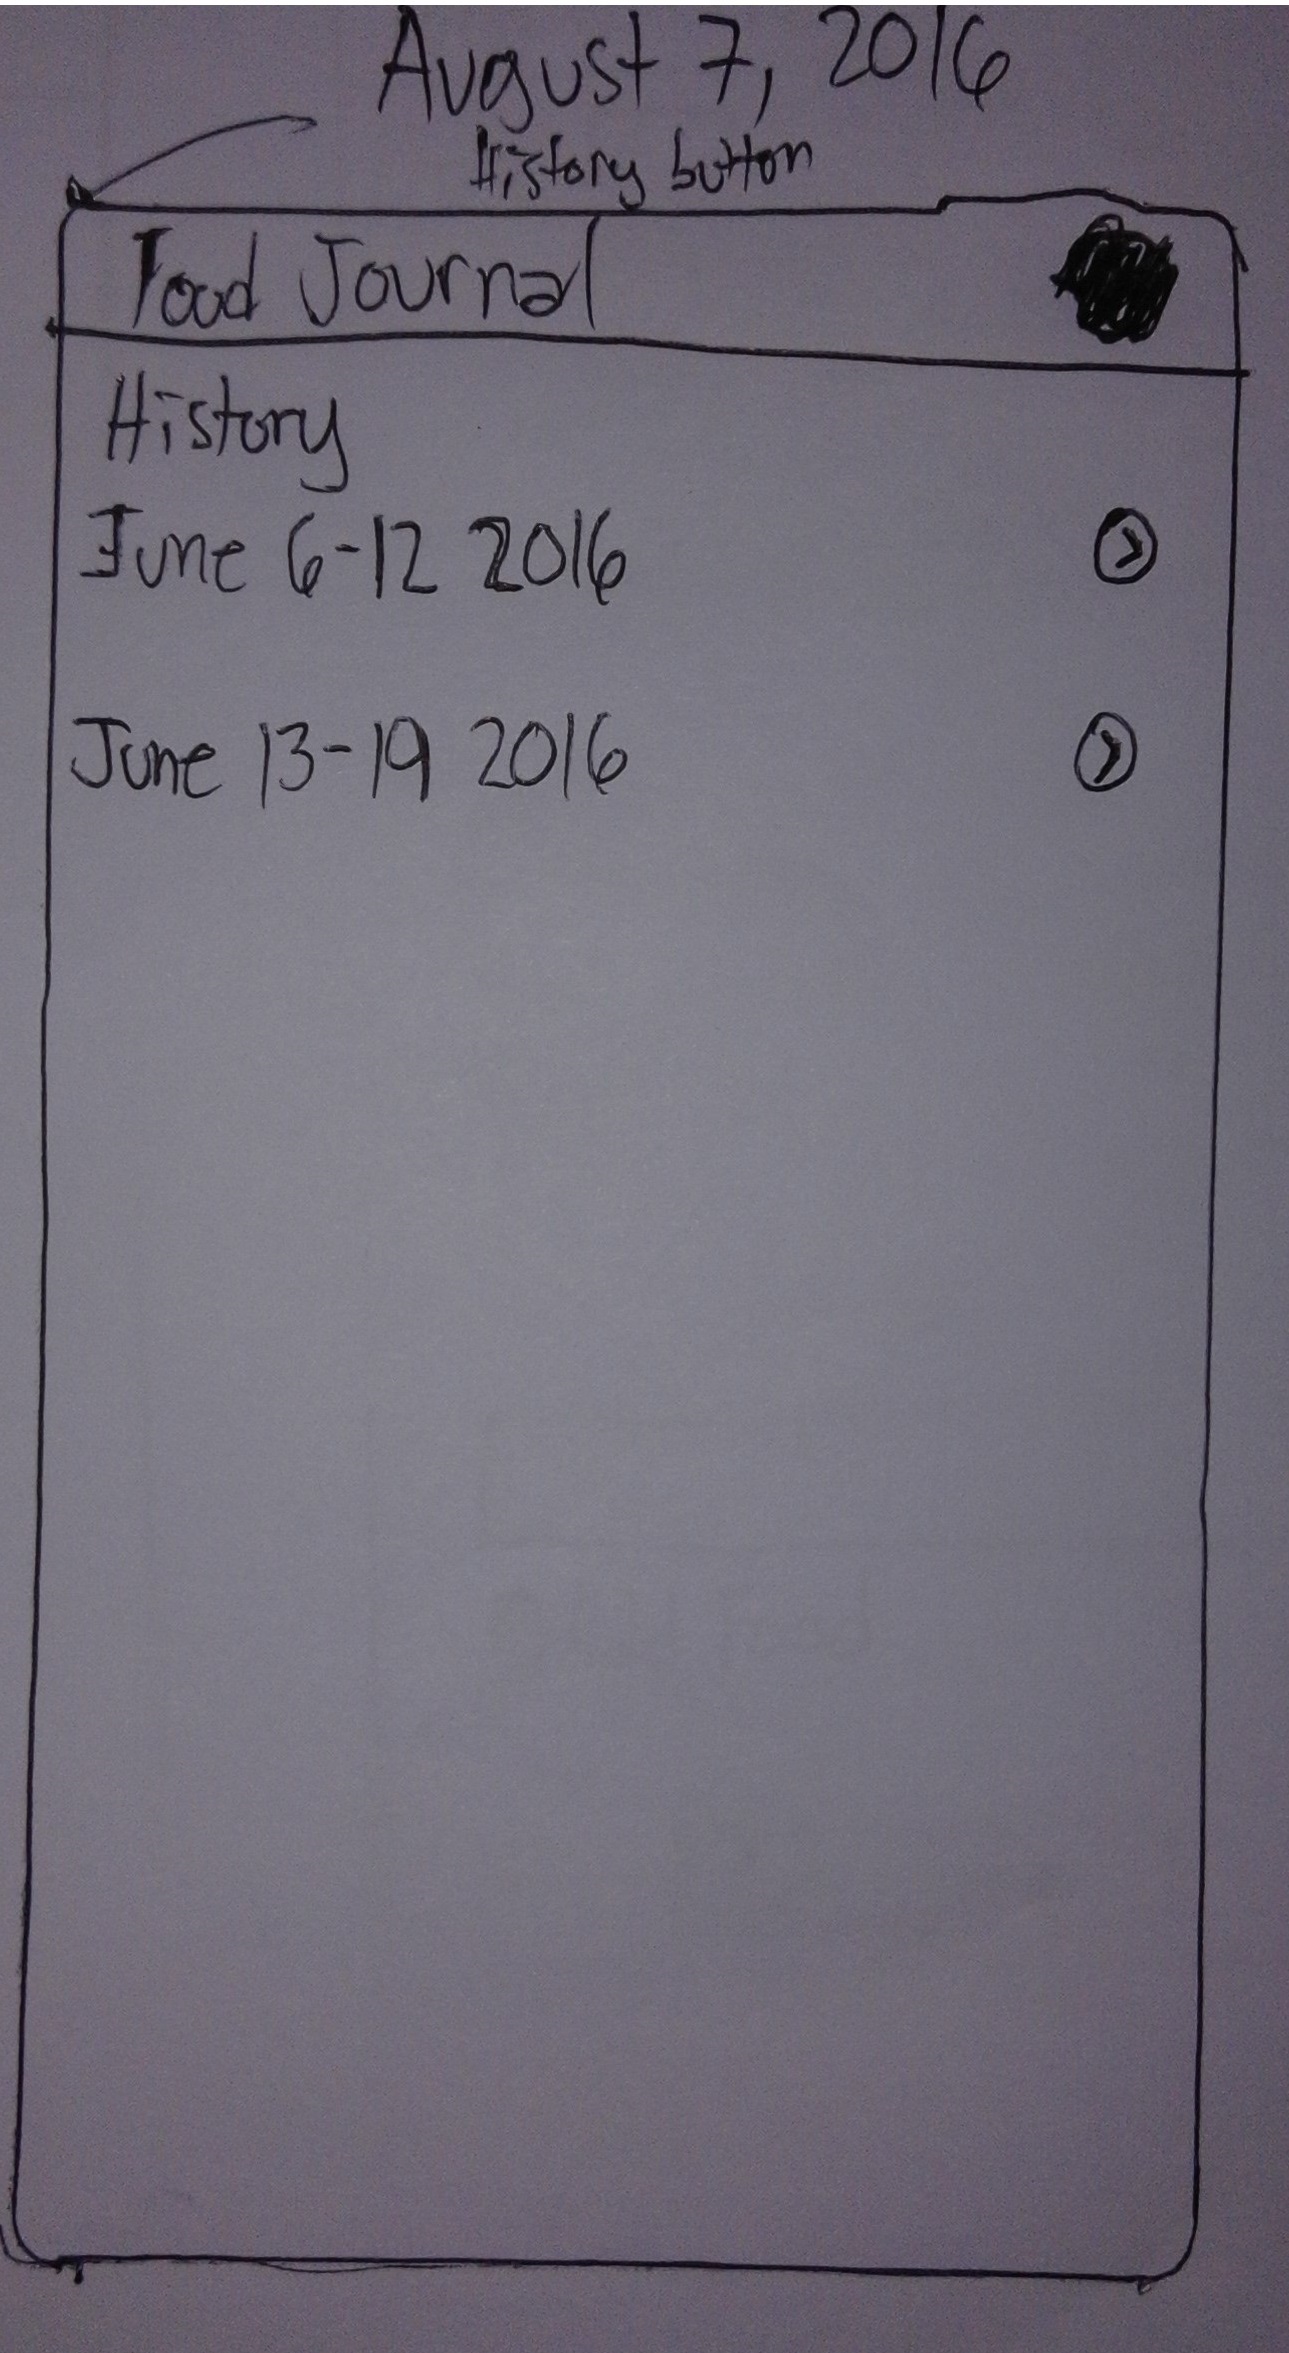 August 7, 2016
History button
Food Journal
History
June 6-12 2016
June 13-19 2016